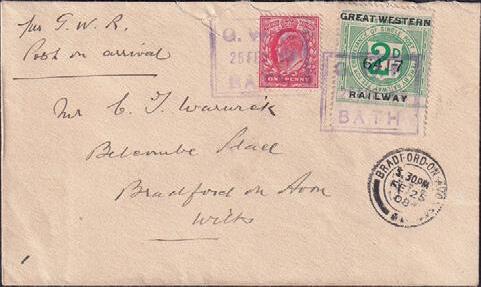 per G.W.R.
Post on arrival
Mr C. T. Warwick
Belcombe Place
Bradford on Avon
Wilts
G.W.R.
25 FE
BATH
ONE PENNY
GREAT WESTERN
2D
6417
RAILWAY
BATH
BRADFORD-ON-AVON
3.30PM
FE 25
08